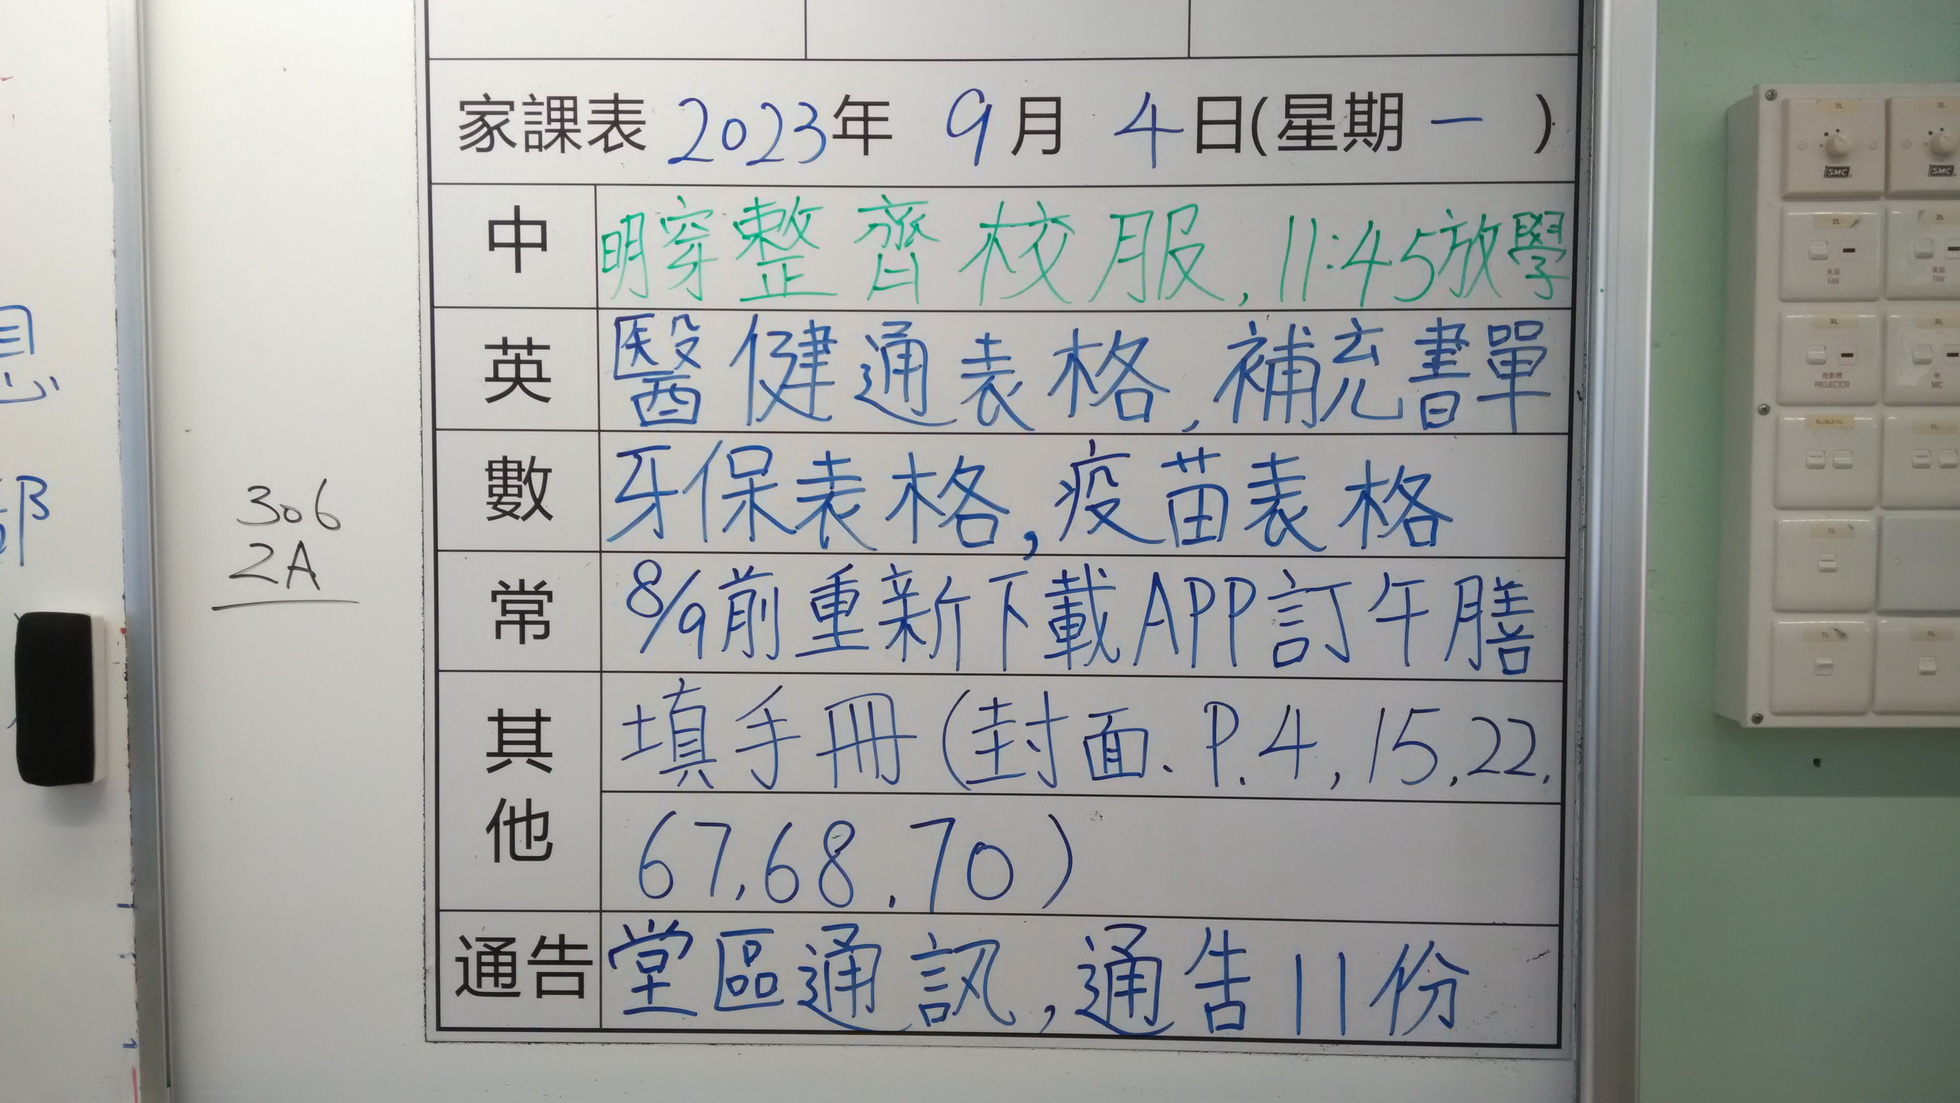 家課表 2023年 9月 4日(星期一 )
中 明穿整齊校服, 11:45放學
英 醫健通表格, 補充書單
數 牙保表格, 疫苗表格
常 8/9前重新下載APP訂午膳
其他 填手冊(封面、P.4, 15, 22,
67, 68, 70)
通告 堂區通訊, 通告11份
306
2A
息
部
SMC
SMC
FAN
FAN
PROJECTOR
MIC